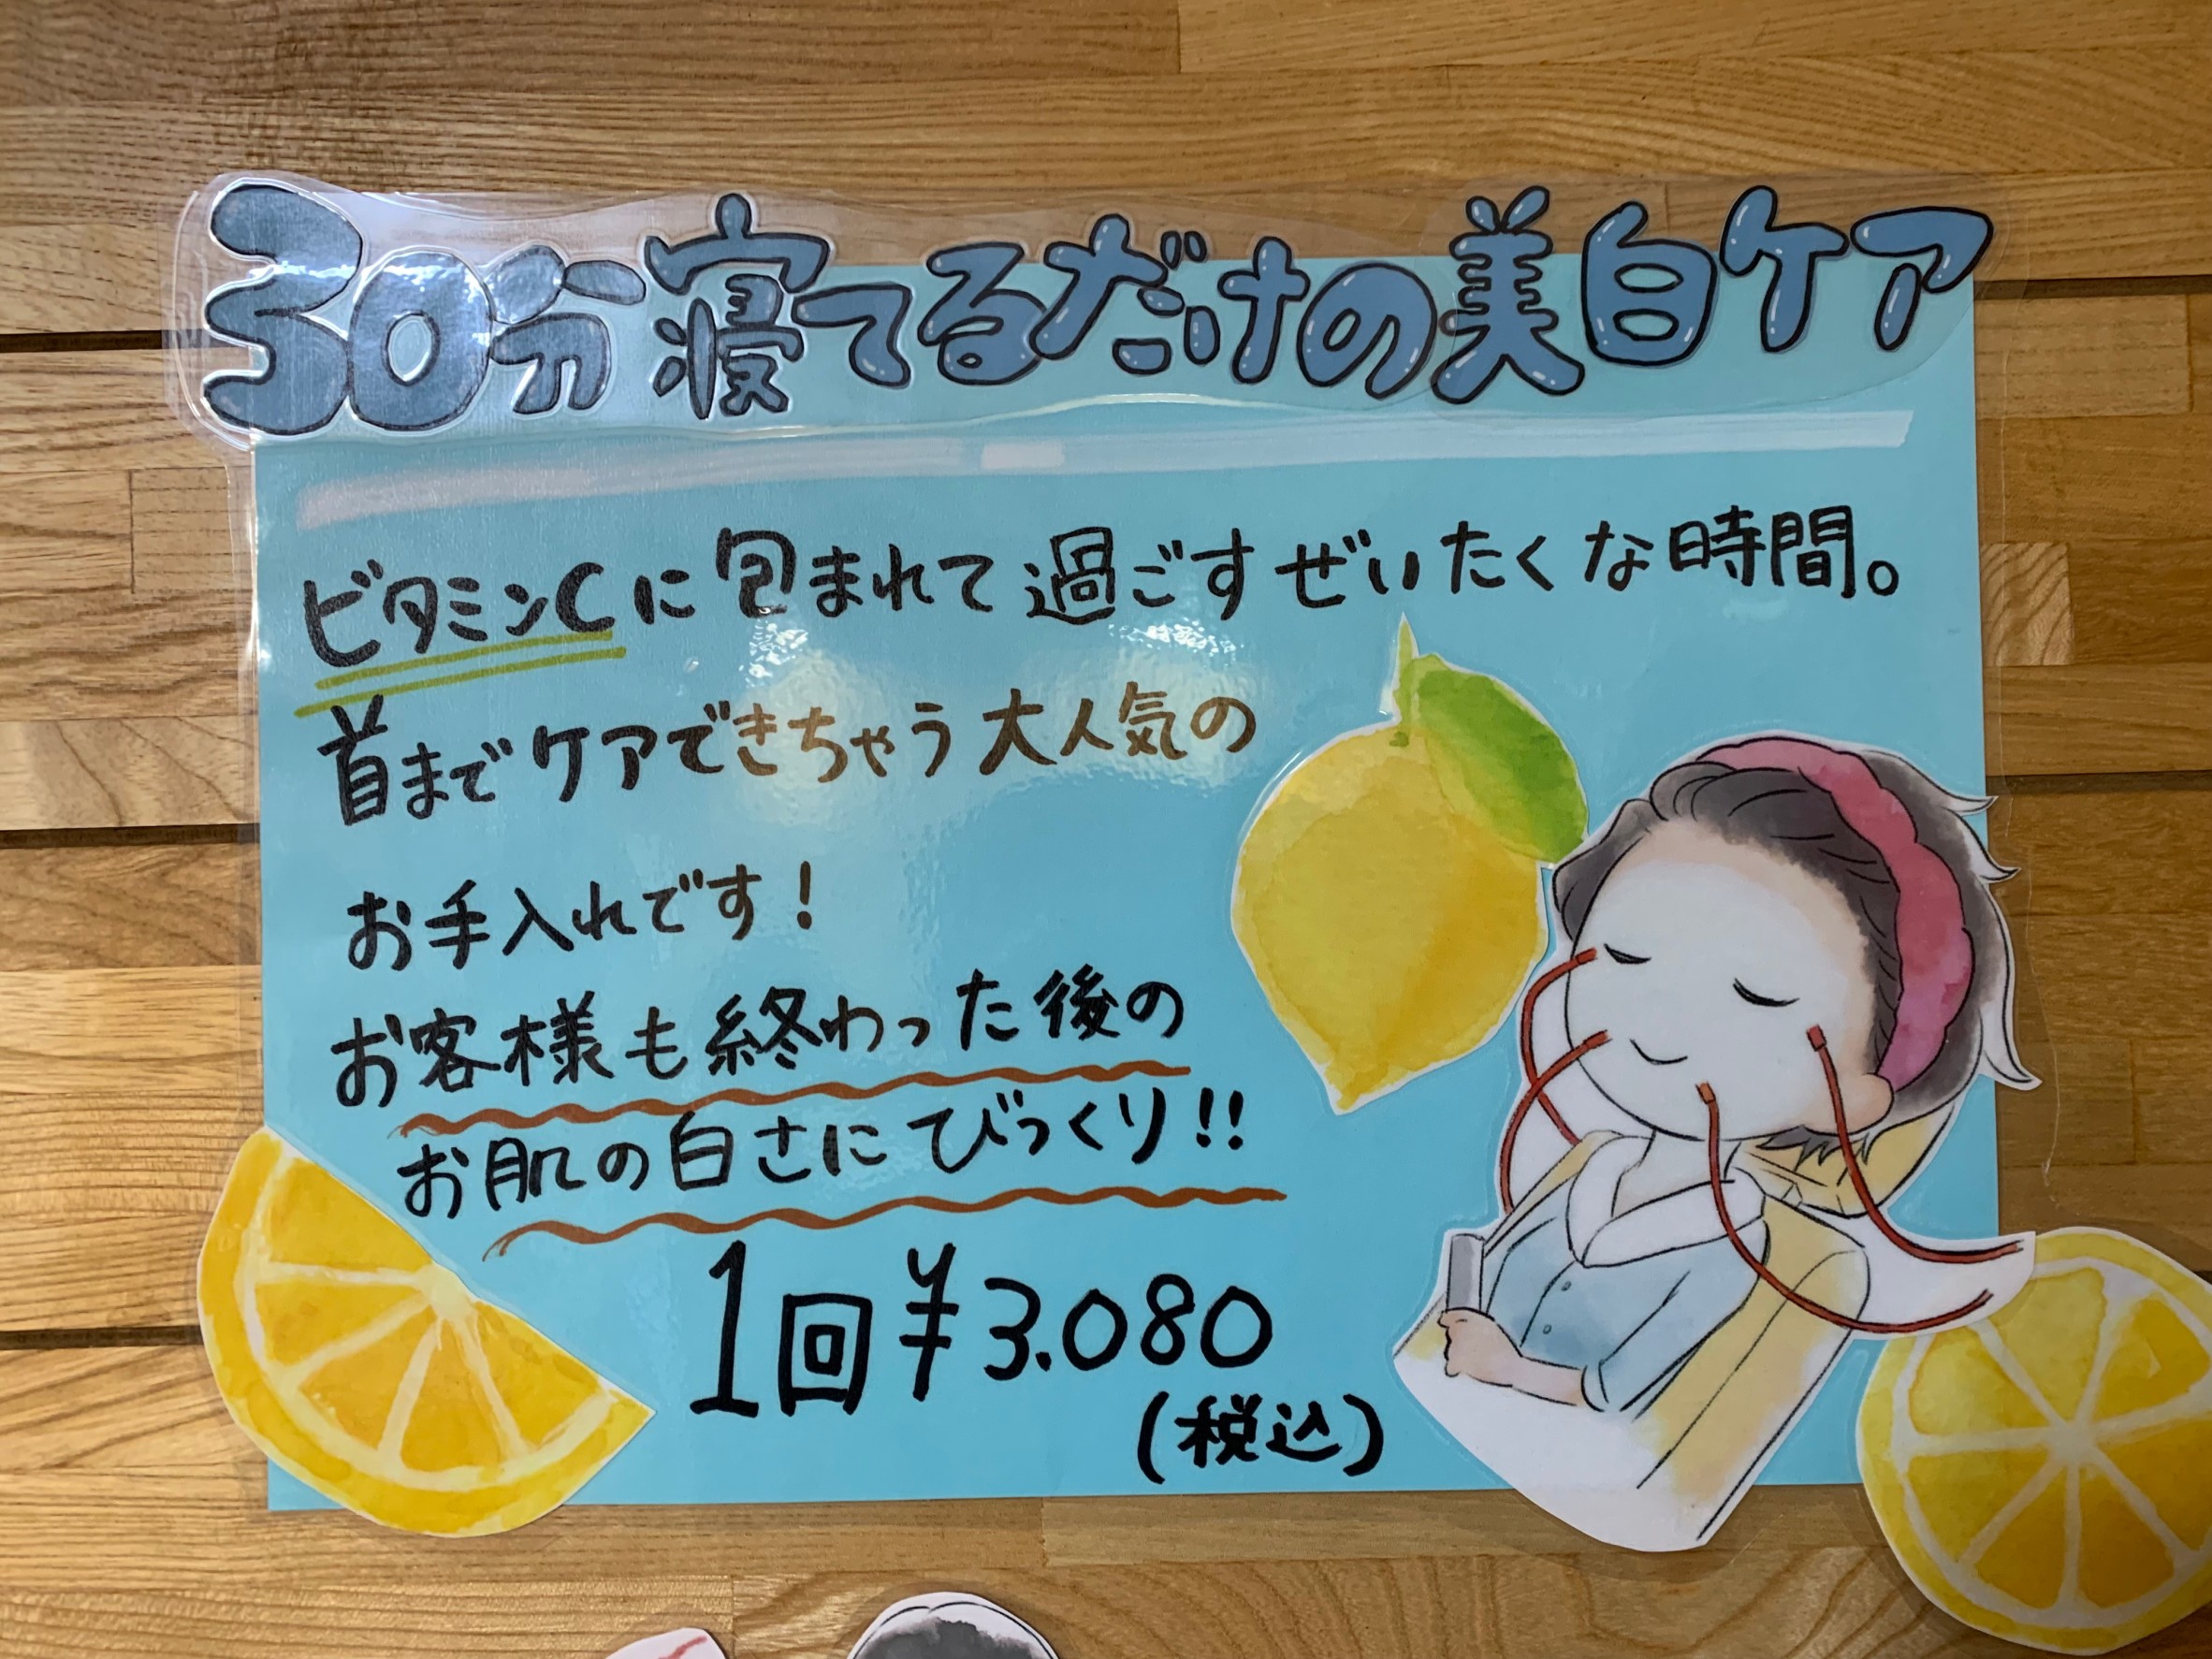 30分寝てるだけの美白ケア
ビタミンCに包まれて過ごすぜいたくな時間。
首までケアできちゃう大人気の
お手入れです!
お客様も終わった後の
お肌の白さにびっくり!!
1回¥3.080
(税込)